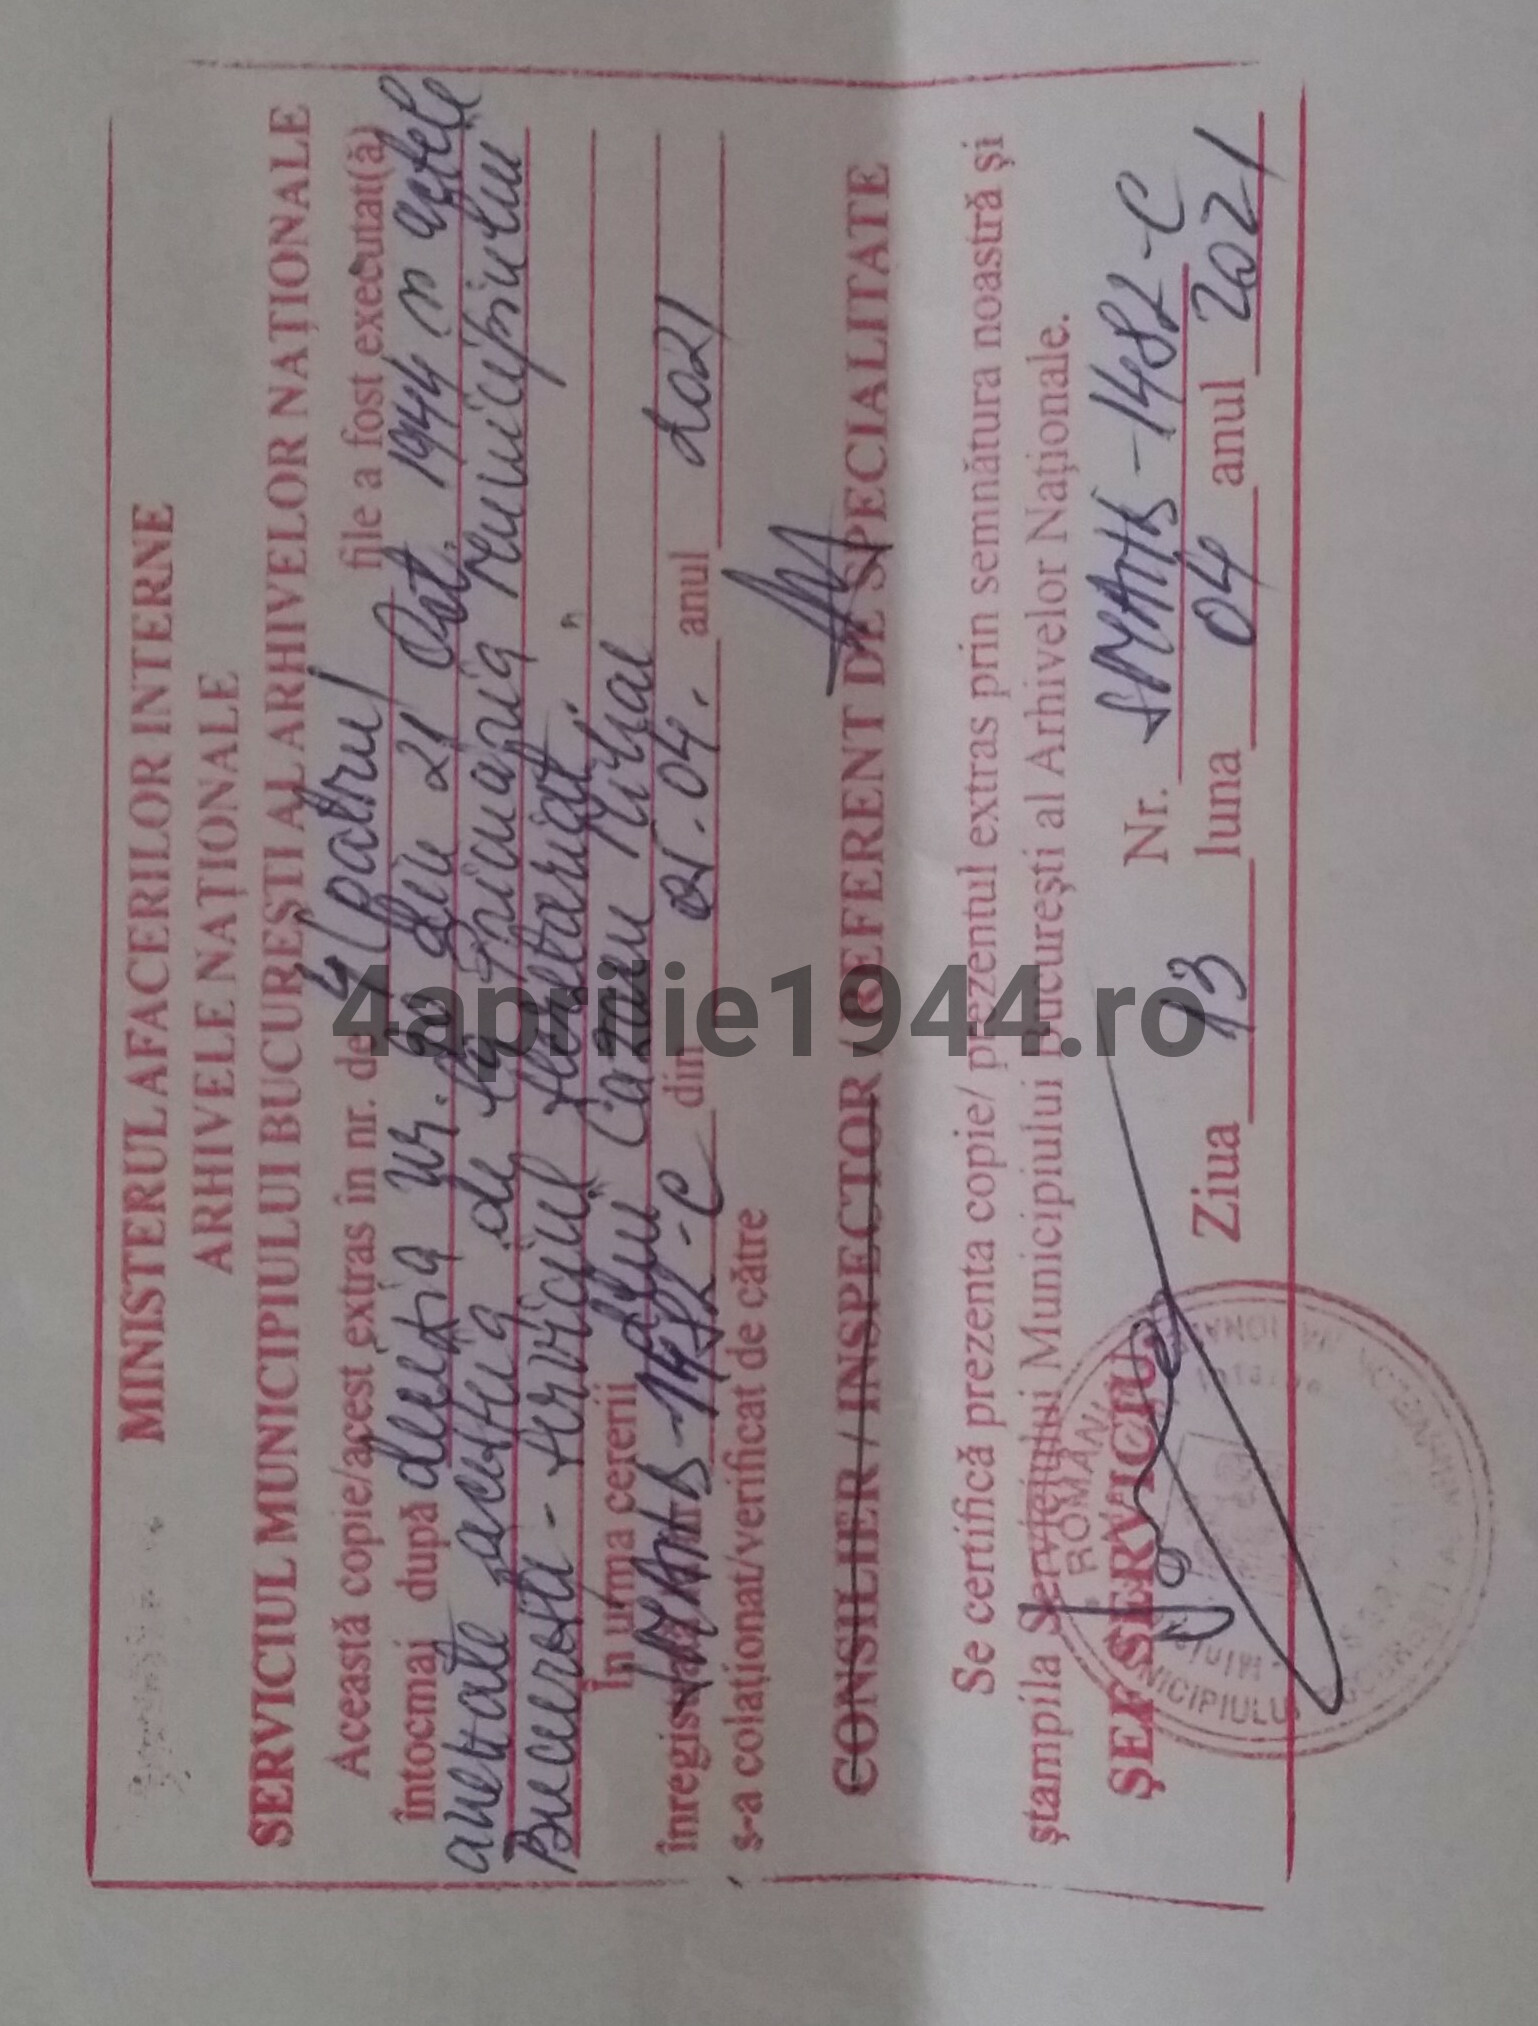 MINISTERUL AFACERILOR INTERNE
ARHIVELE NAȚIONALE
SERVICIUL MUNICIPIULUI BUCUREȘTI AL ARHIVELOR NAȚIONALE
Această copie/acest extras în nr. de 4 (patru) file a fost executat(ă)
întocmai după decizia nr. din 21 Oct. 1944 și actele
anexate acesteia de la Primăria Municipiului
București - serviciul
În urma cererii dlui Cazan Mihai
înregistrată SMBAN-1482-C din 01.04. anul 2021
s-a colaționat/verificat de către
CONSILIER / INSPECTOR / REFERENT DE SPECIALITATE
Se certifică prezenta copie/ prezentul extras prin semnătura noastră și
ștampila Serviciului Municipiului București al Arhivelor Naționale.
ȘEF SERVICIU,
Nr. SMBAN-1482-C
Ziua 13 luna 04 anul 2021
ROMÂNIA
MUNICIPIULUI BUCUREȘTI
4aprilie1944.ro